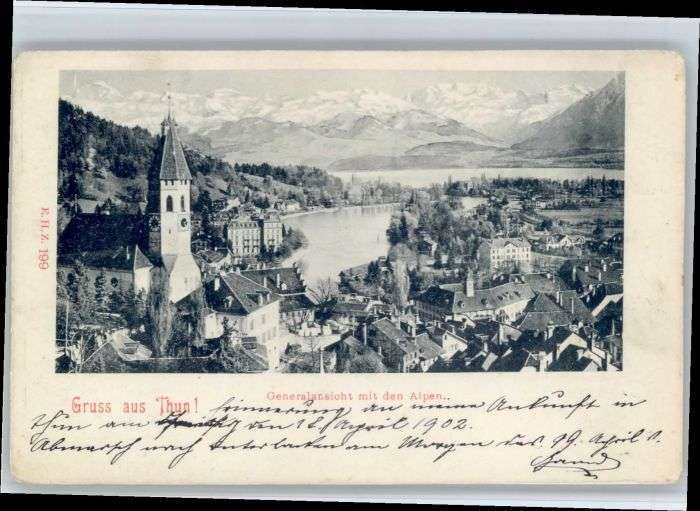 E. H. Z. 199
Gruss aus Thun!
Generalansicht mit den Alpen.
Erinnerung an meine Ankunft in
Thun am 18 April 1902.
Abmarsch nach Interlaken am Morgen des 19. April